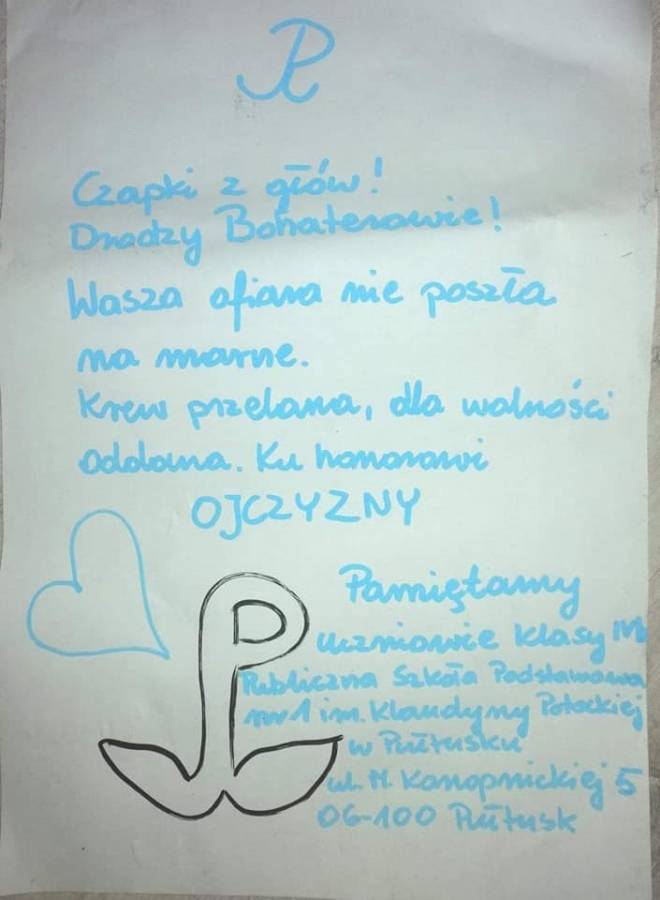 Czapki z głów!
Drodzy Bohaterowie!
Wasza ofiara nie poszła
na marne.
Krew przelana, dla wolności
oddana. Ku honorowi
OJCZYZNY
Pamiętamy
uczniowie klasy
Publiczna Szkoła Podstawowa
nr 1 im. Klaudyny Potockiej
w Pułtusku
ul. M. Konopnickiej 5
06-100 Pułtusk